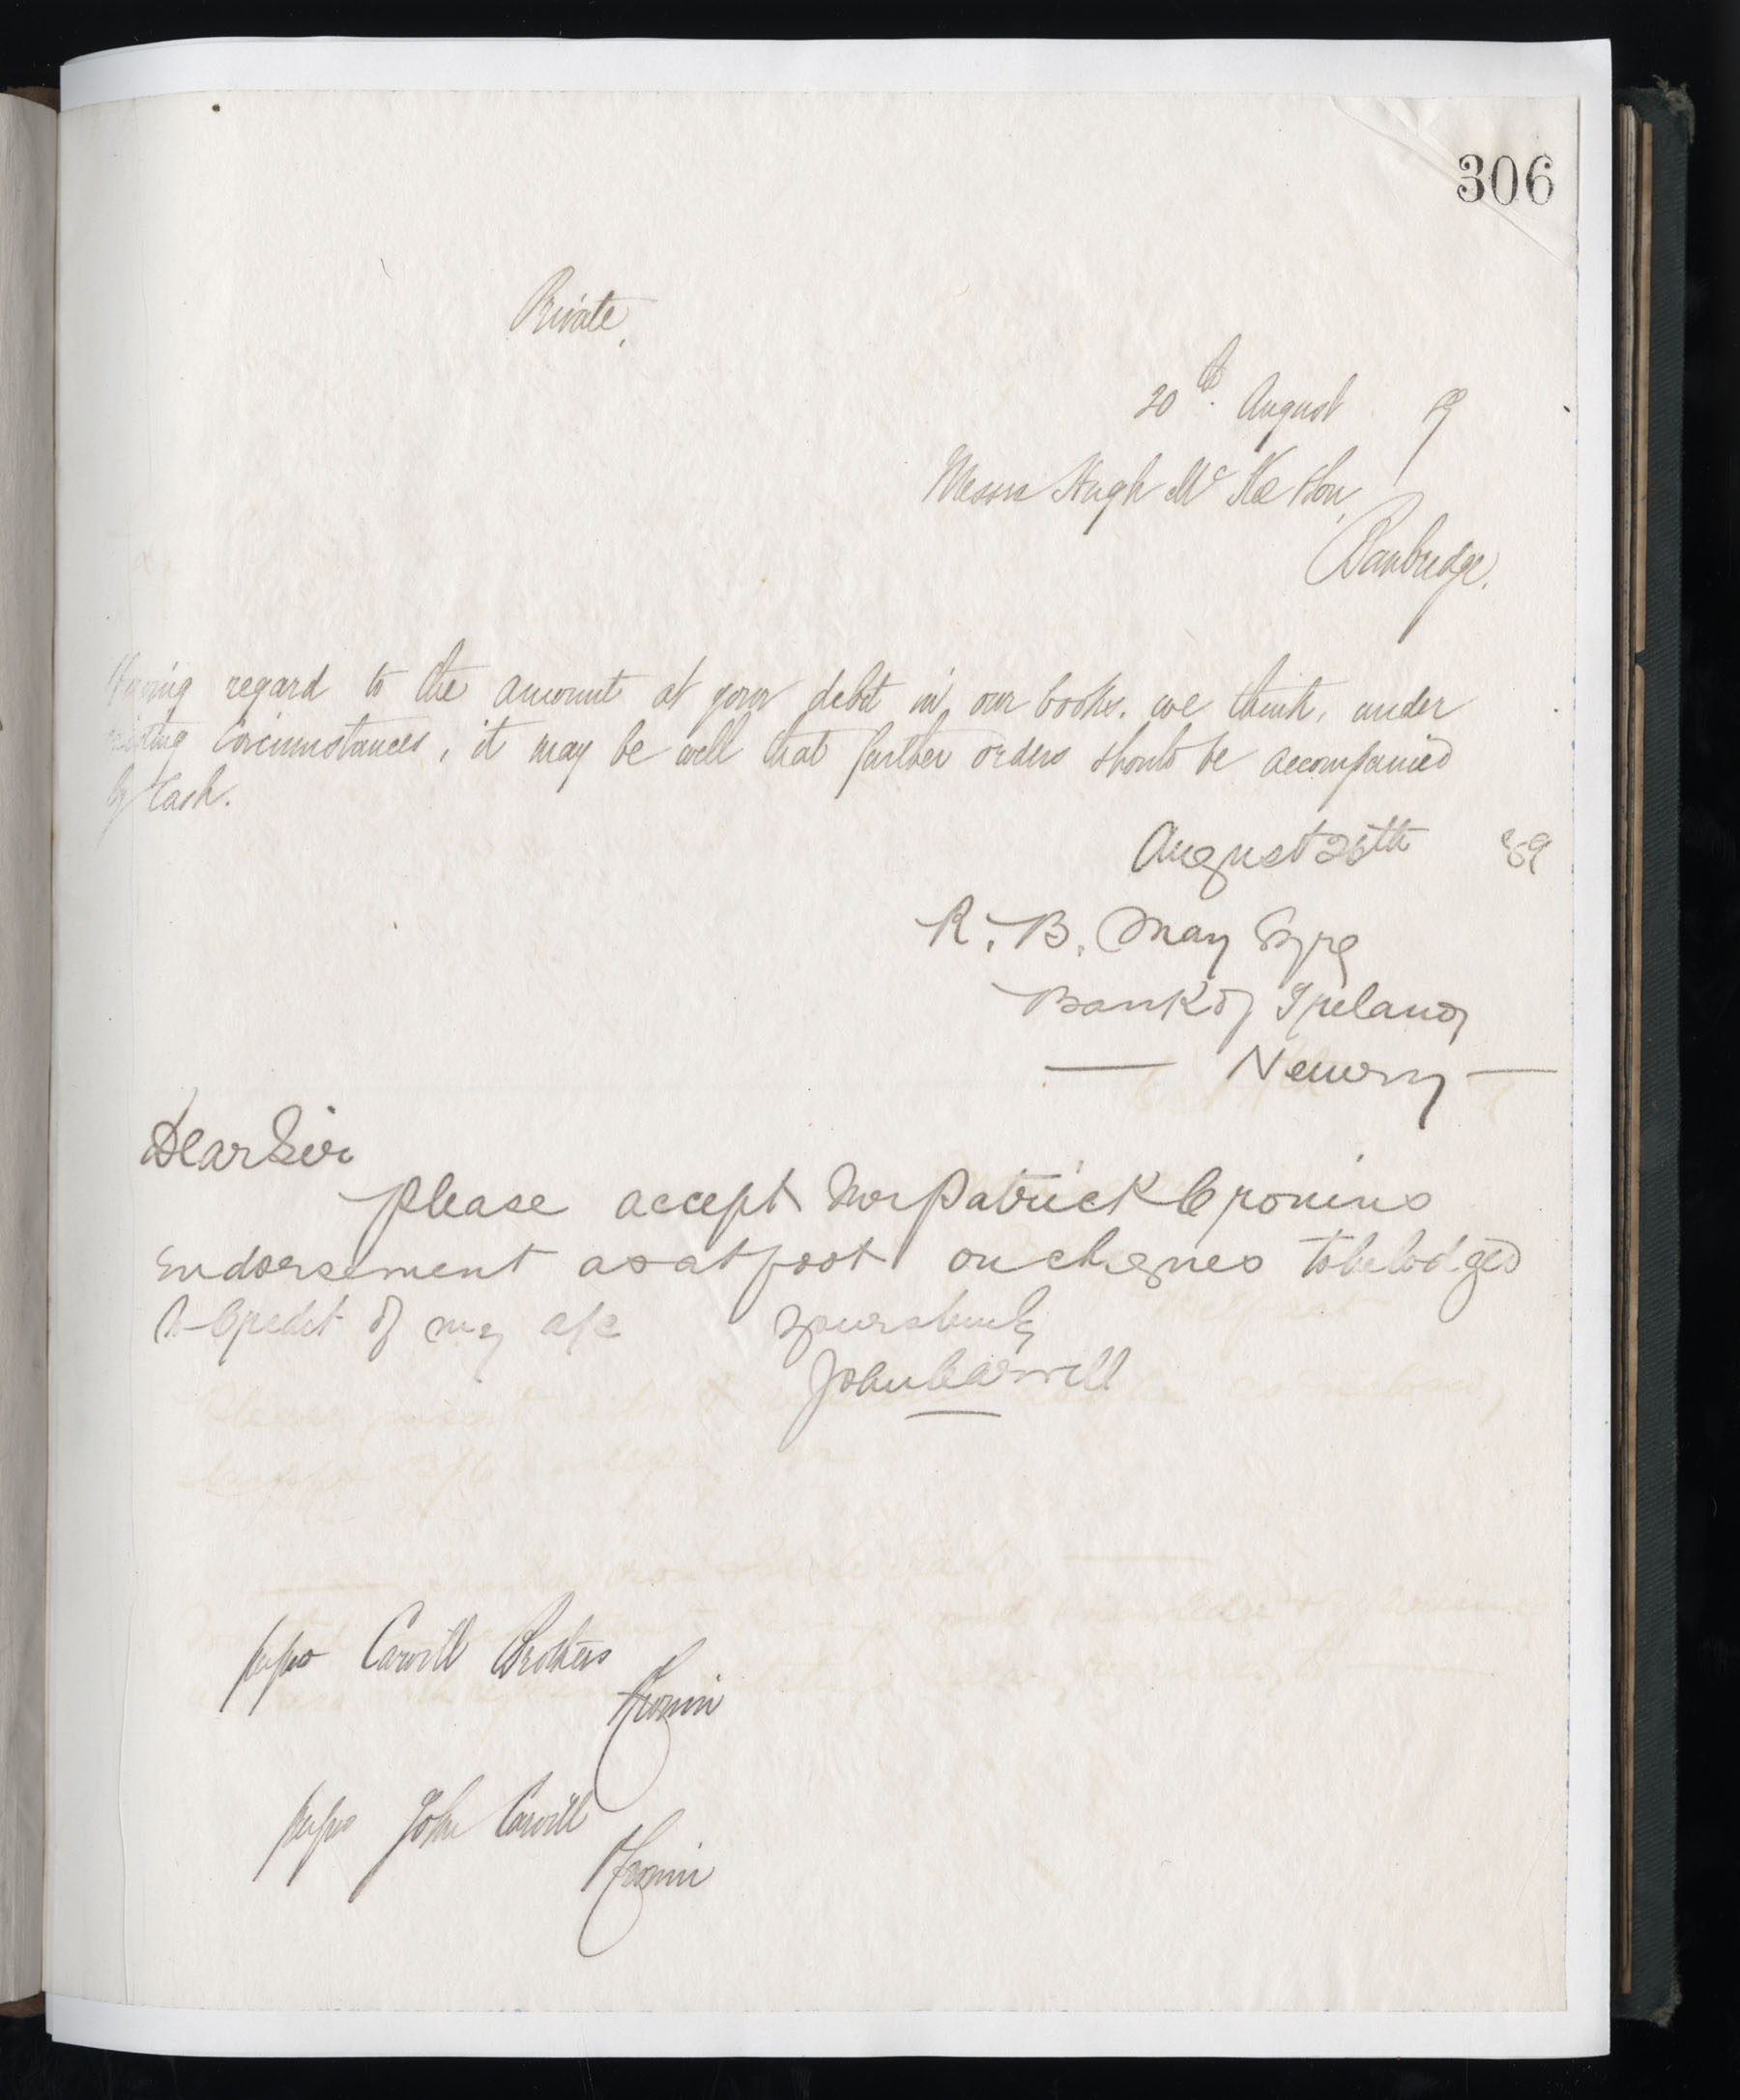 306
Private,
20th August 9
Messrs Hugh Mc Kee & Son,
Banbridge.
Having regard to the amount at your debit in our books. we think, under
existing circumstances, it may be well that further orders should be accompanied
by Cash.
August 26th 89
R. B. May Esqre
Bank of Ireland
Newry
Dear Sir
Please accept Mr Patrick Cronins
endorsement as at foot on cheques to be lodged
to Credit of my a/c Yours truly
John Carvill
pupro Carvill Brothers
PCronin
pupro John Carvill
PCronin